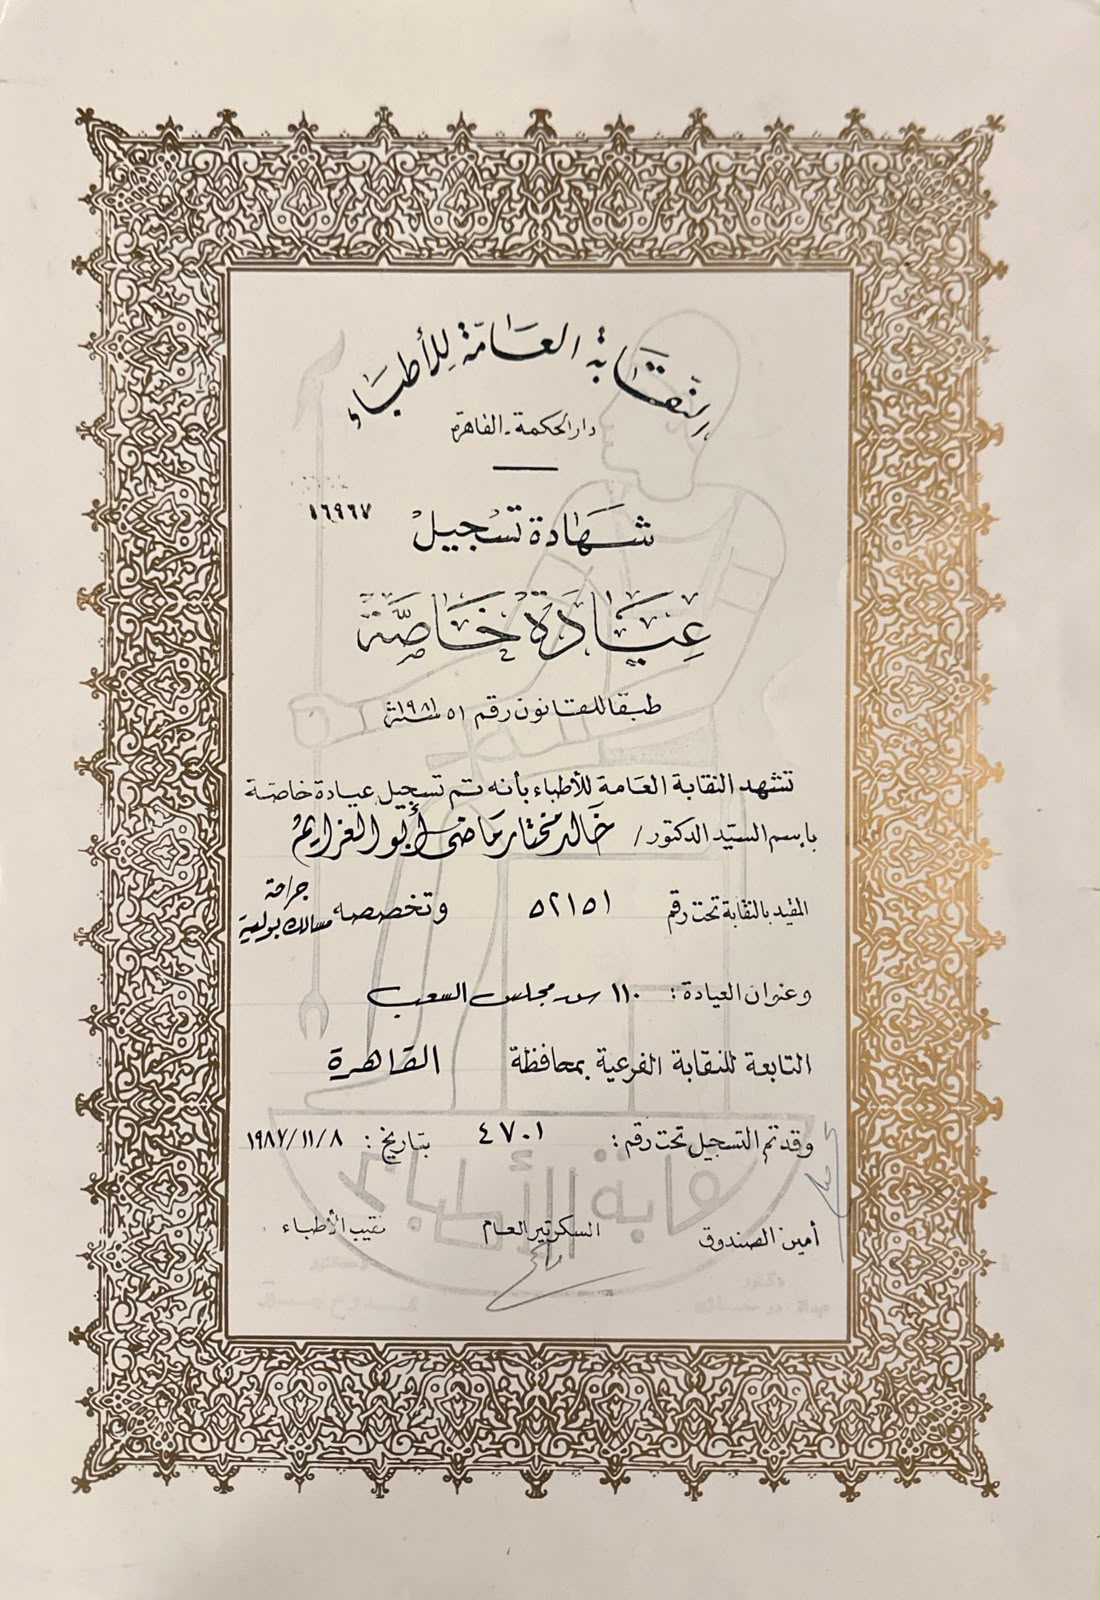 النقابة العامة للأطباء
دار الحكمة - القاهرة
١٦٩٦٧
شهادة تسجيل
عيادة خاصة
طبقا للقانون رقم ٥١ لسنة ١٩٨١
تشهد النقابة العامة للأطباء بأنه تم تسجيل عيادة خاصة
بإسم السيد الدكتور / خالد مختار ماضى أبو العزايم
المقيد بالنقابة تحت رقم ٥٢١٥١ وتخصصه جراحة مسالك بولية
وعنوان العيادة : ١١٠ ش مجلس الشعب
التابعة للنقابة الفرعية بمحافظة القاهرة
وقد تم التسجيل تحت رقم : ٤٧٠١ بتاريخ : ١٩٨٧/١١/٨
أمين الصندوق السكرتير العام نقيب الأطباء
نقابة الأطباء